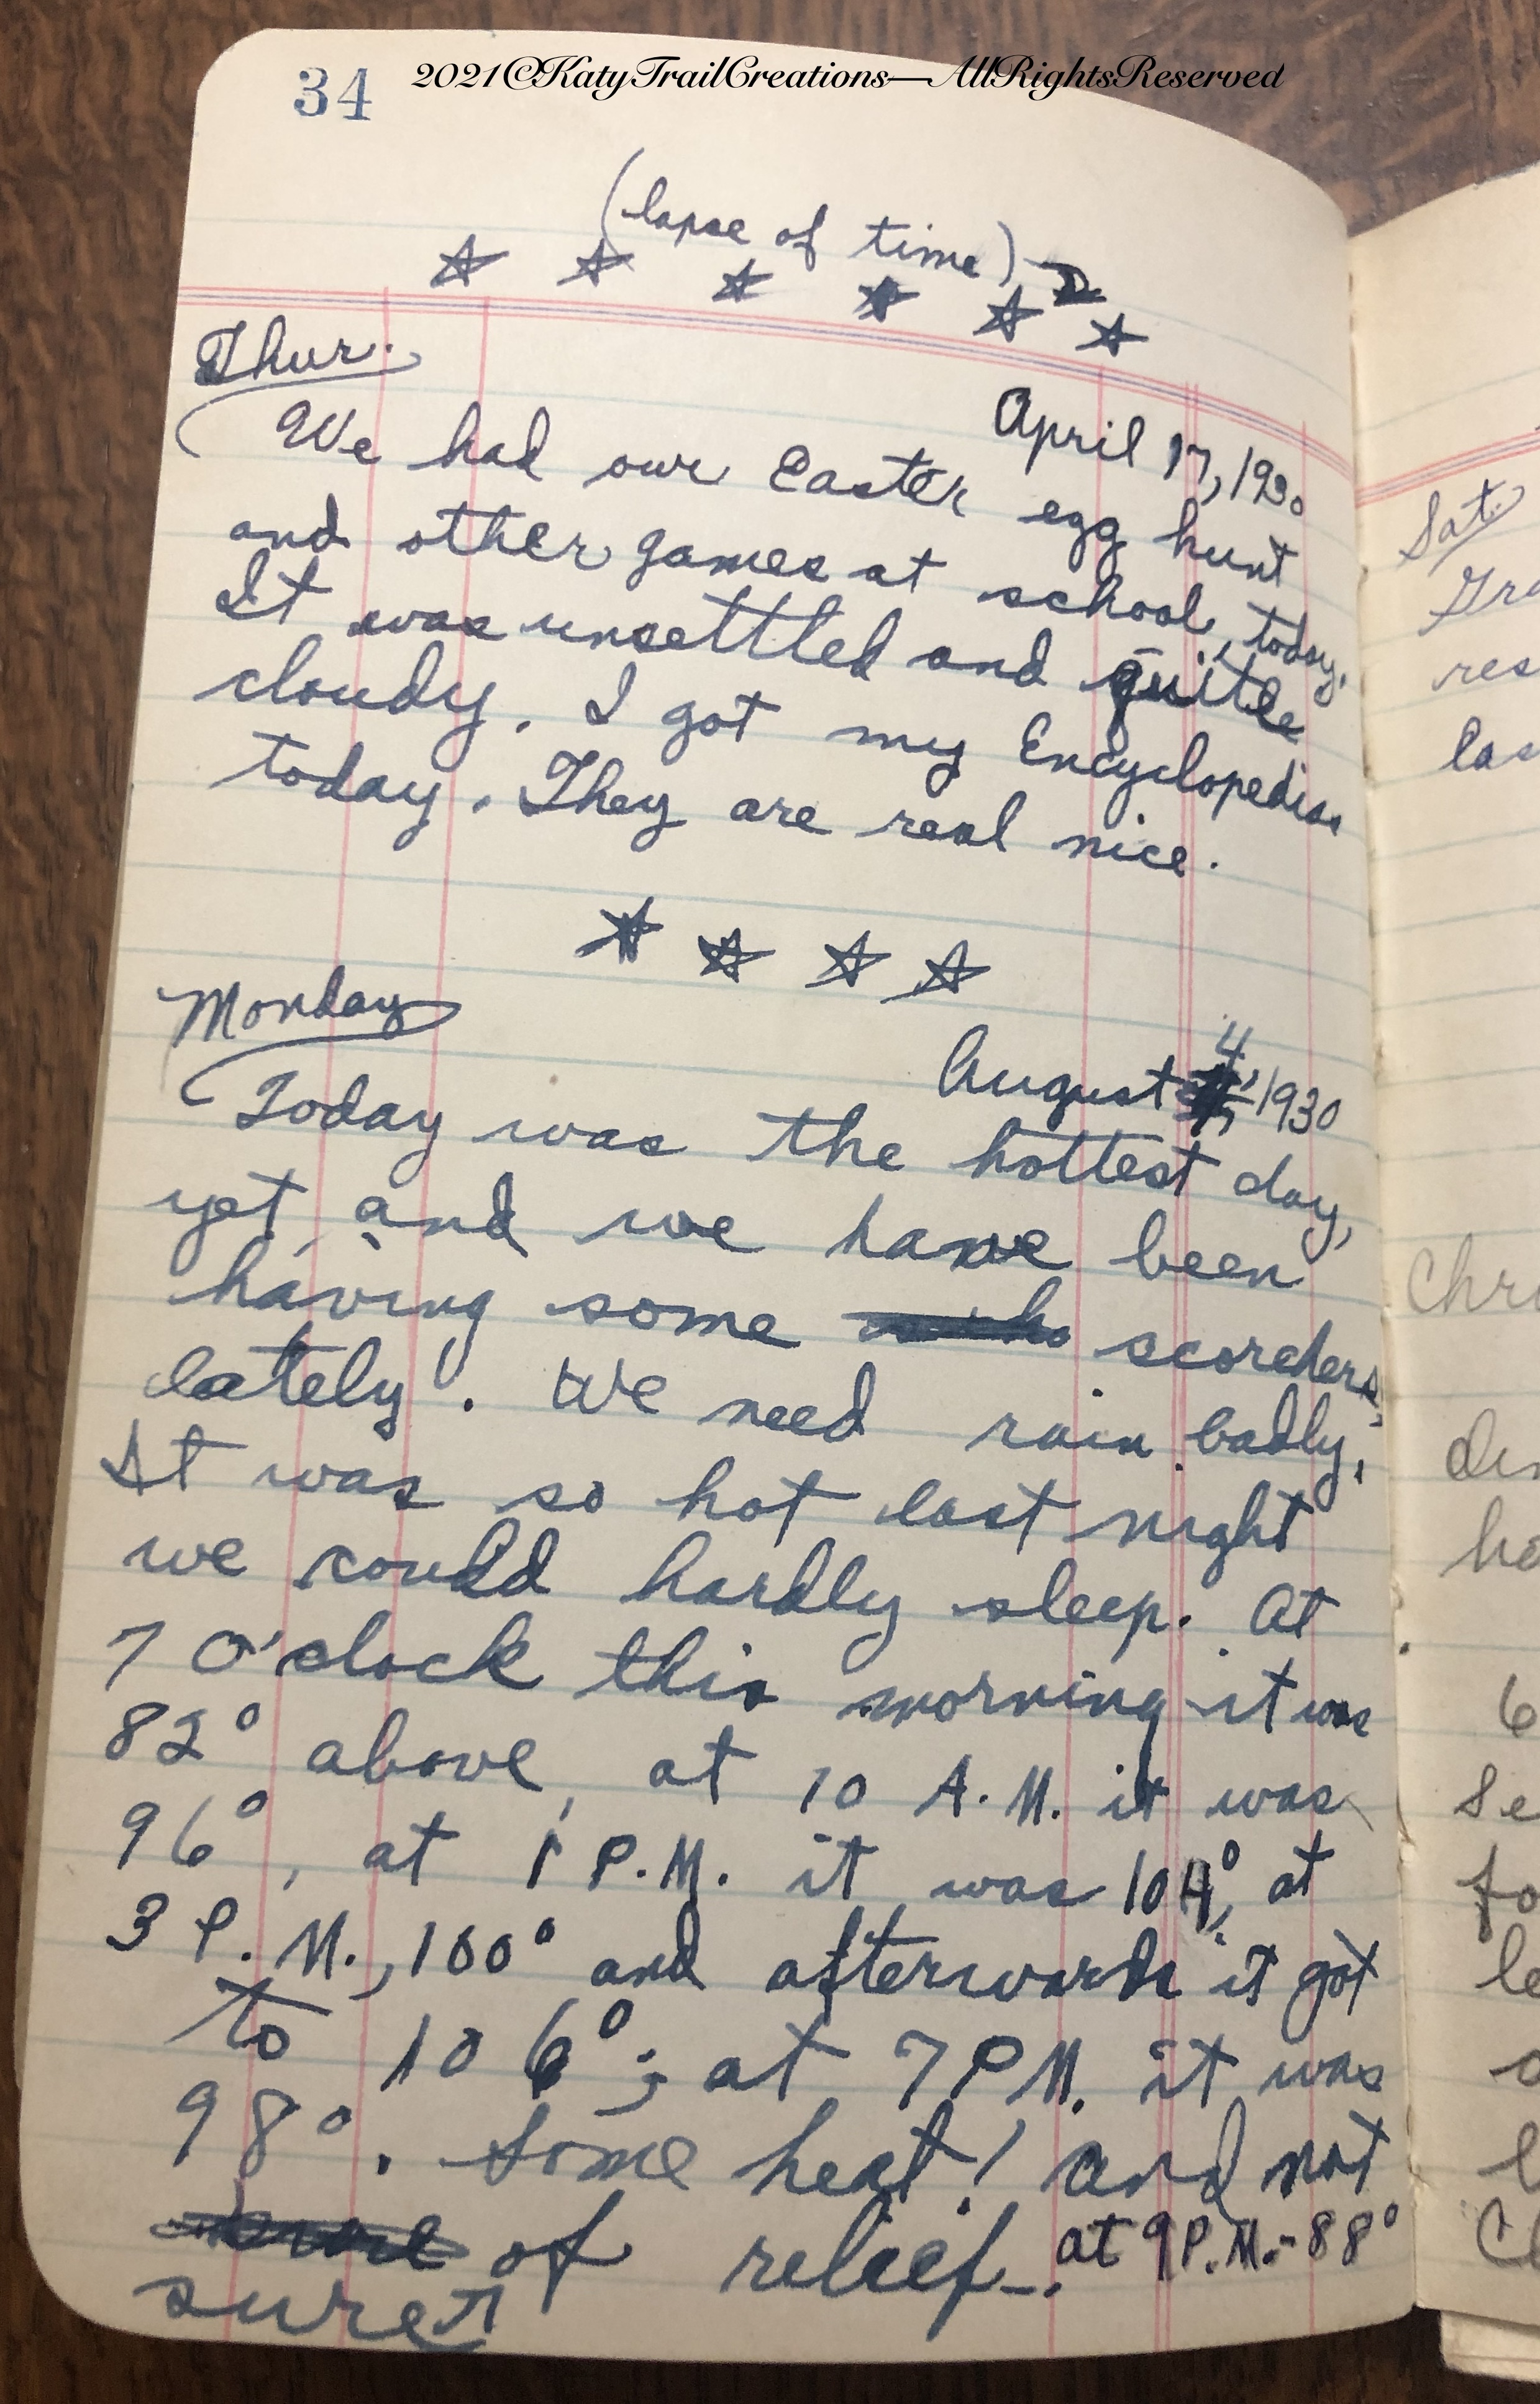 34
2021©KatyTrailCreations—AllRightsReserved
(lapse of time)
Thur.
April 17, 1930
We had our Easter egg hunt
and other games at school, today.
It was unsettled and quite
cloudy. I got my Encyclopedias
today. They are real nice.
Monday
August 4, 1930
Today was the hottest day,
yet, and we have been
having some scorchers,
lately. We need rain badly.
It was so hot last night
we could hardly sleep. At
7 O'clock this morning it was
82° above, at 10 A.M. it was
96°, at 1 P.M. it was 104°, at
3 P.M., 100° and afterwards it got
to 106°; at 7 P.M. it was
98°. Some heat! and not
of relief. at 9 P.M.-88°
sure
Sat.
Gra
res
las
Chri
din
he
6
Se
fo
le
a
l
Cl